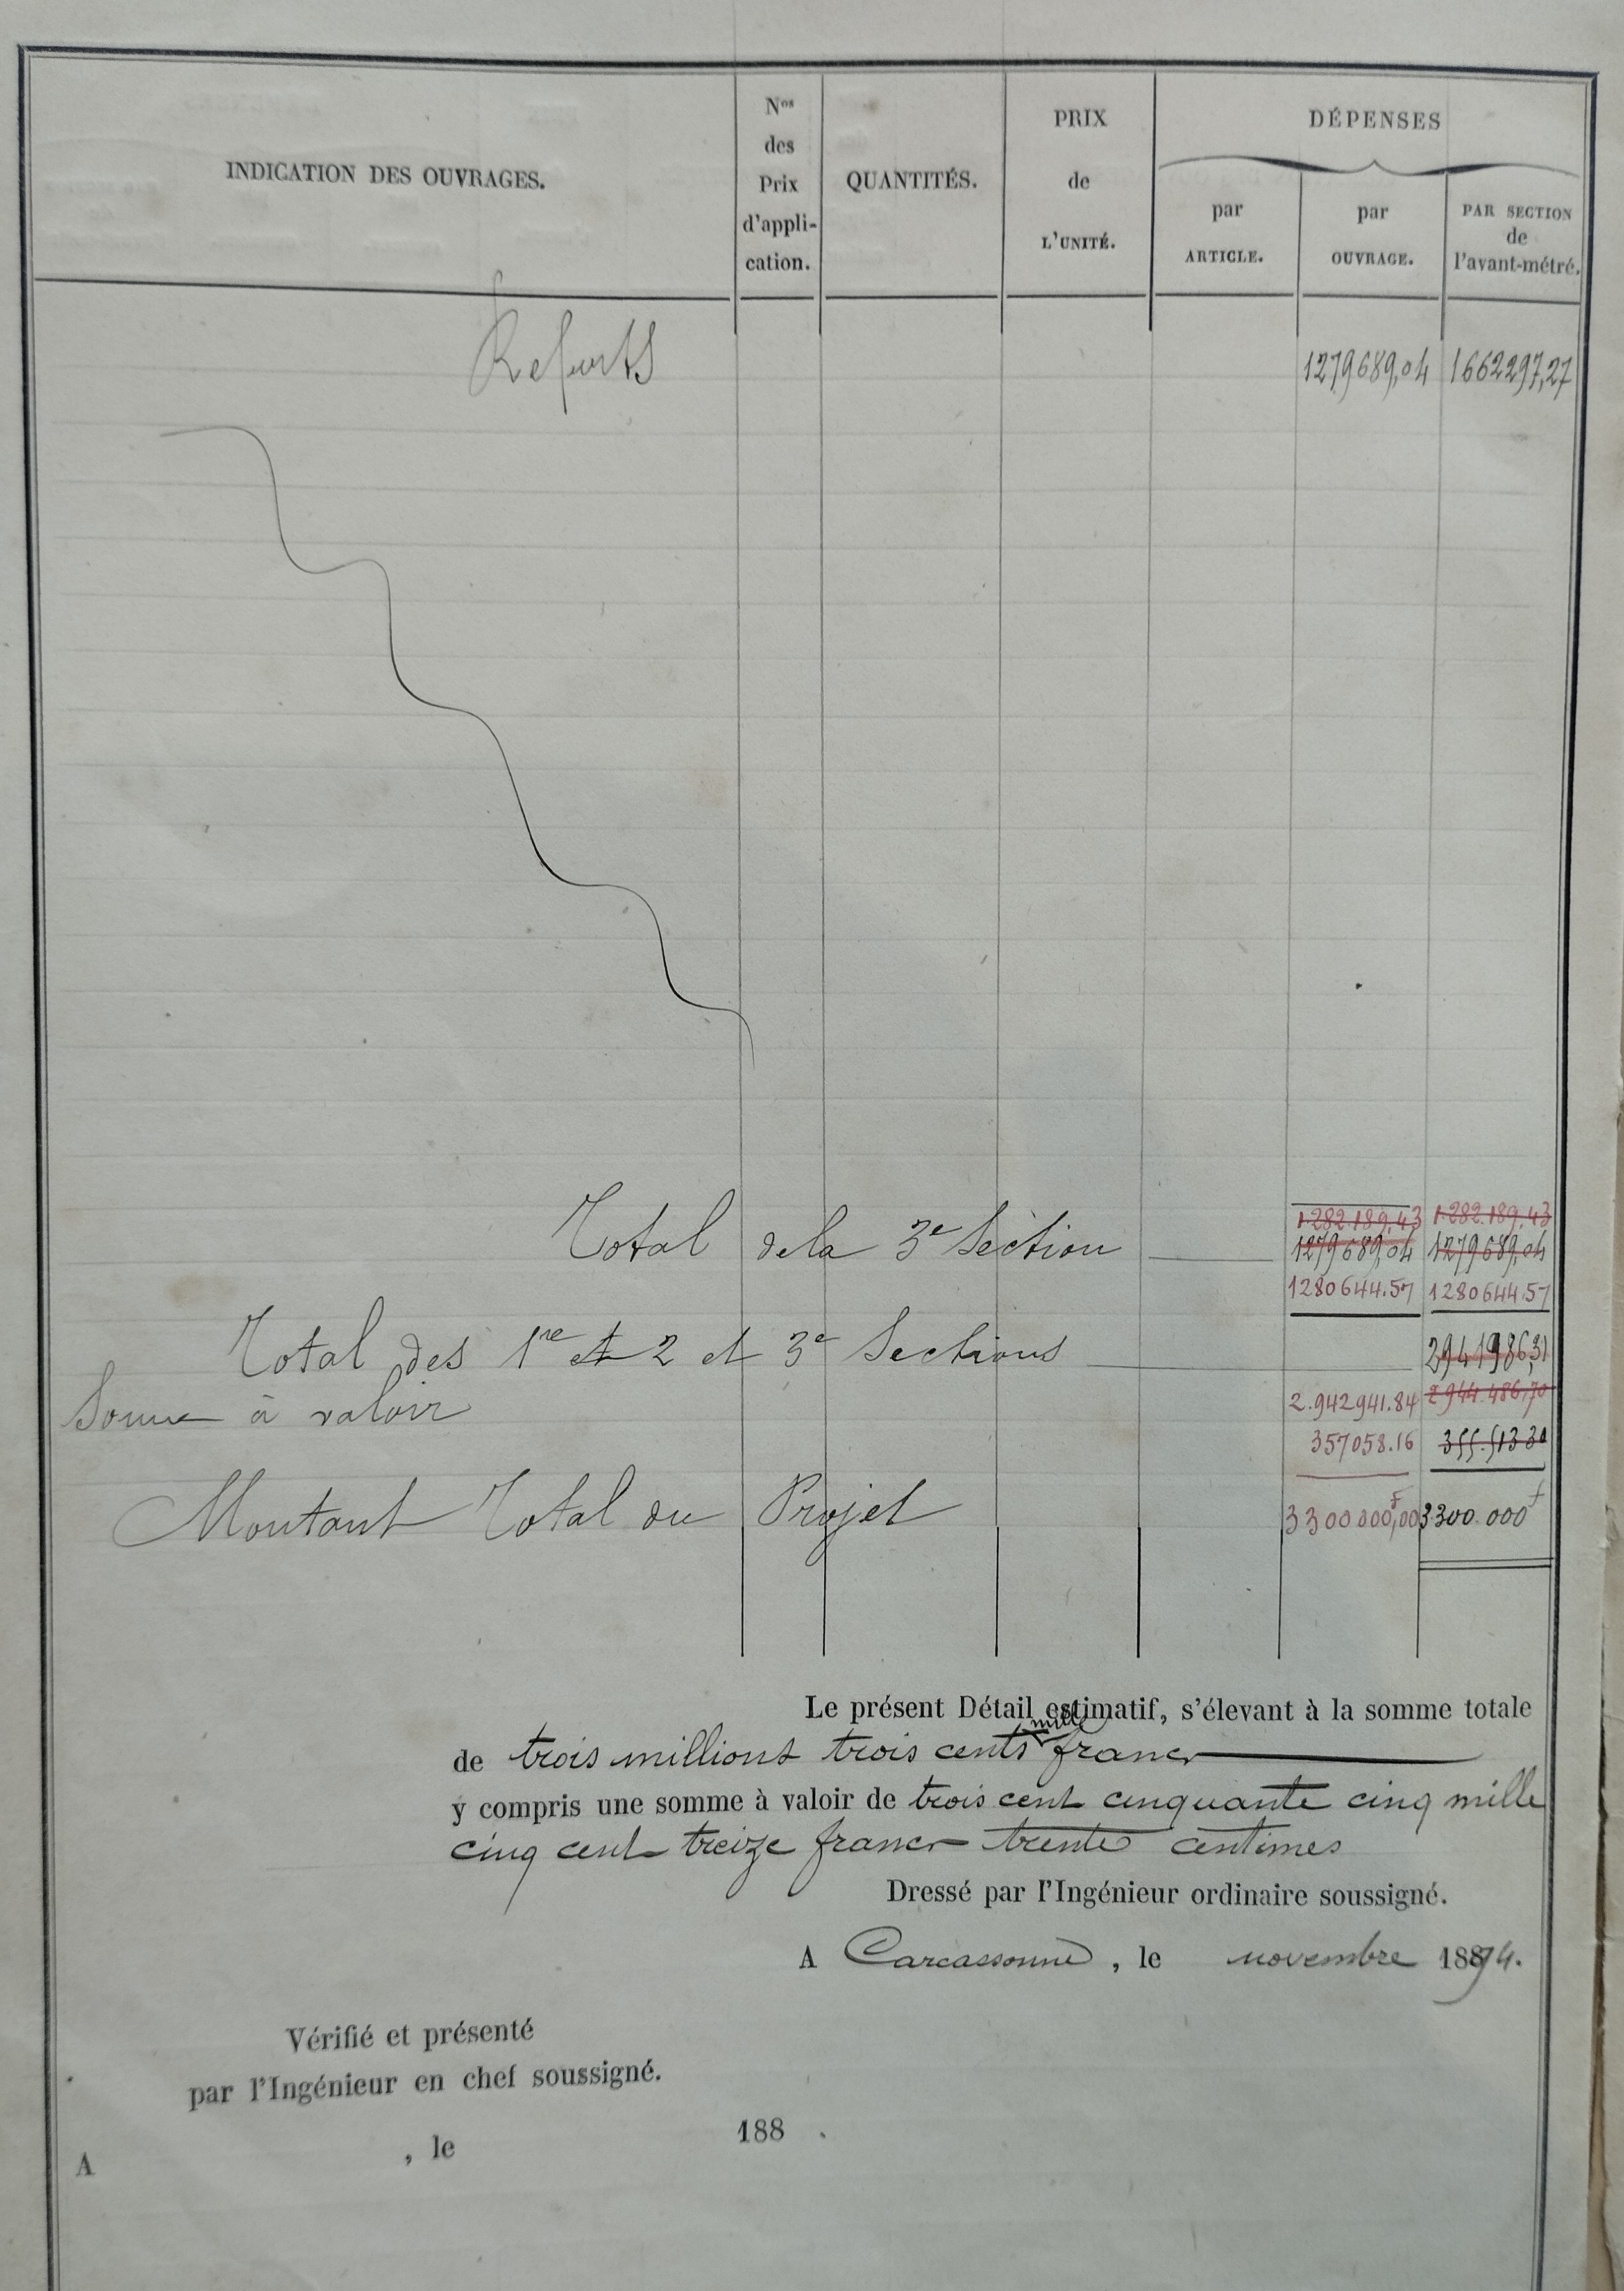 INDICATION DES OUVRAGES.
Nos
des
Prix
d'appli-
cation.
QUANTITÉS.
PRIX
de
L'UNITÉ.
DÉPENSES
par
ARTICLE.
par
OUVRAGE.
PAR SECTION
de
l'avant-métré.
Reports 1279689,04 1662297,27
1.282.189,43 1.282.189,43
Total de la 3e Section 1279689,04 1279689,04
1280644.57 1280644.57
Total des 1re et 2 et 3e Sections 2941986,31
2.942941.84 2944.486,70
Somme à valoir 357058.16 355.513 30
Montant Total du Projet 3300000,00F 3300.000f
Le présent Détail estimatif, s'élevant à la somme totale
mille
de trois millions trois cents francs
y compris une somme à valoir de trois cent cinquante cinq mille
cinq cent treize francs trente centimes
Dressé par l'Ingénieur ordinaire soussigné.
A Carcassonne, le novembre 1894.
Vérifié et présenté
par l'Ingénieur en chef soussigné.
A , le 188 .